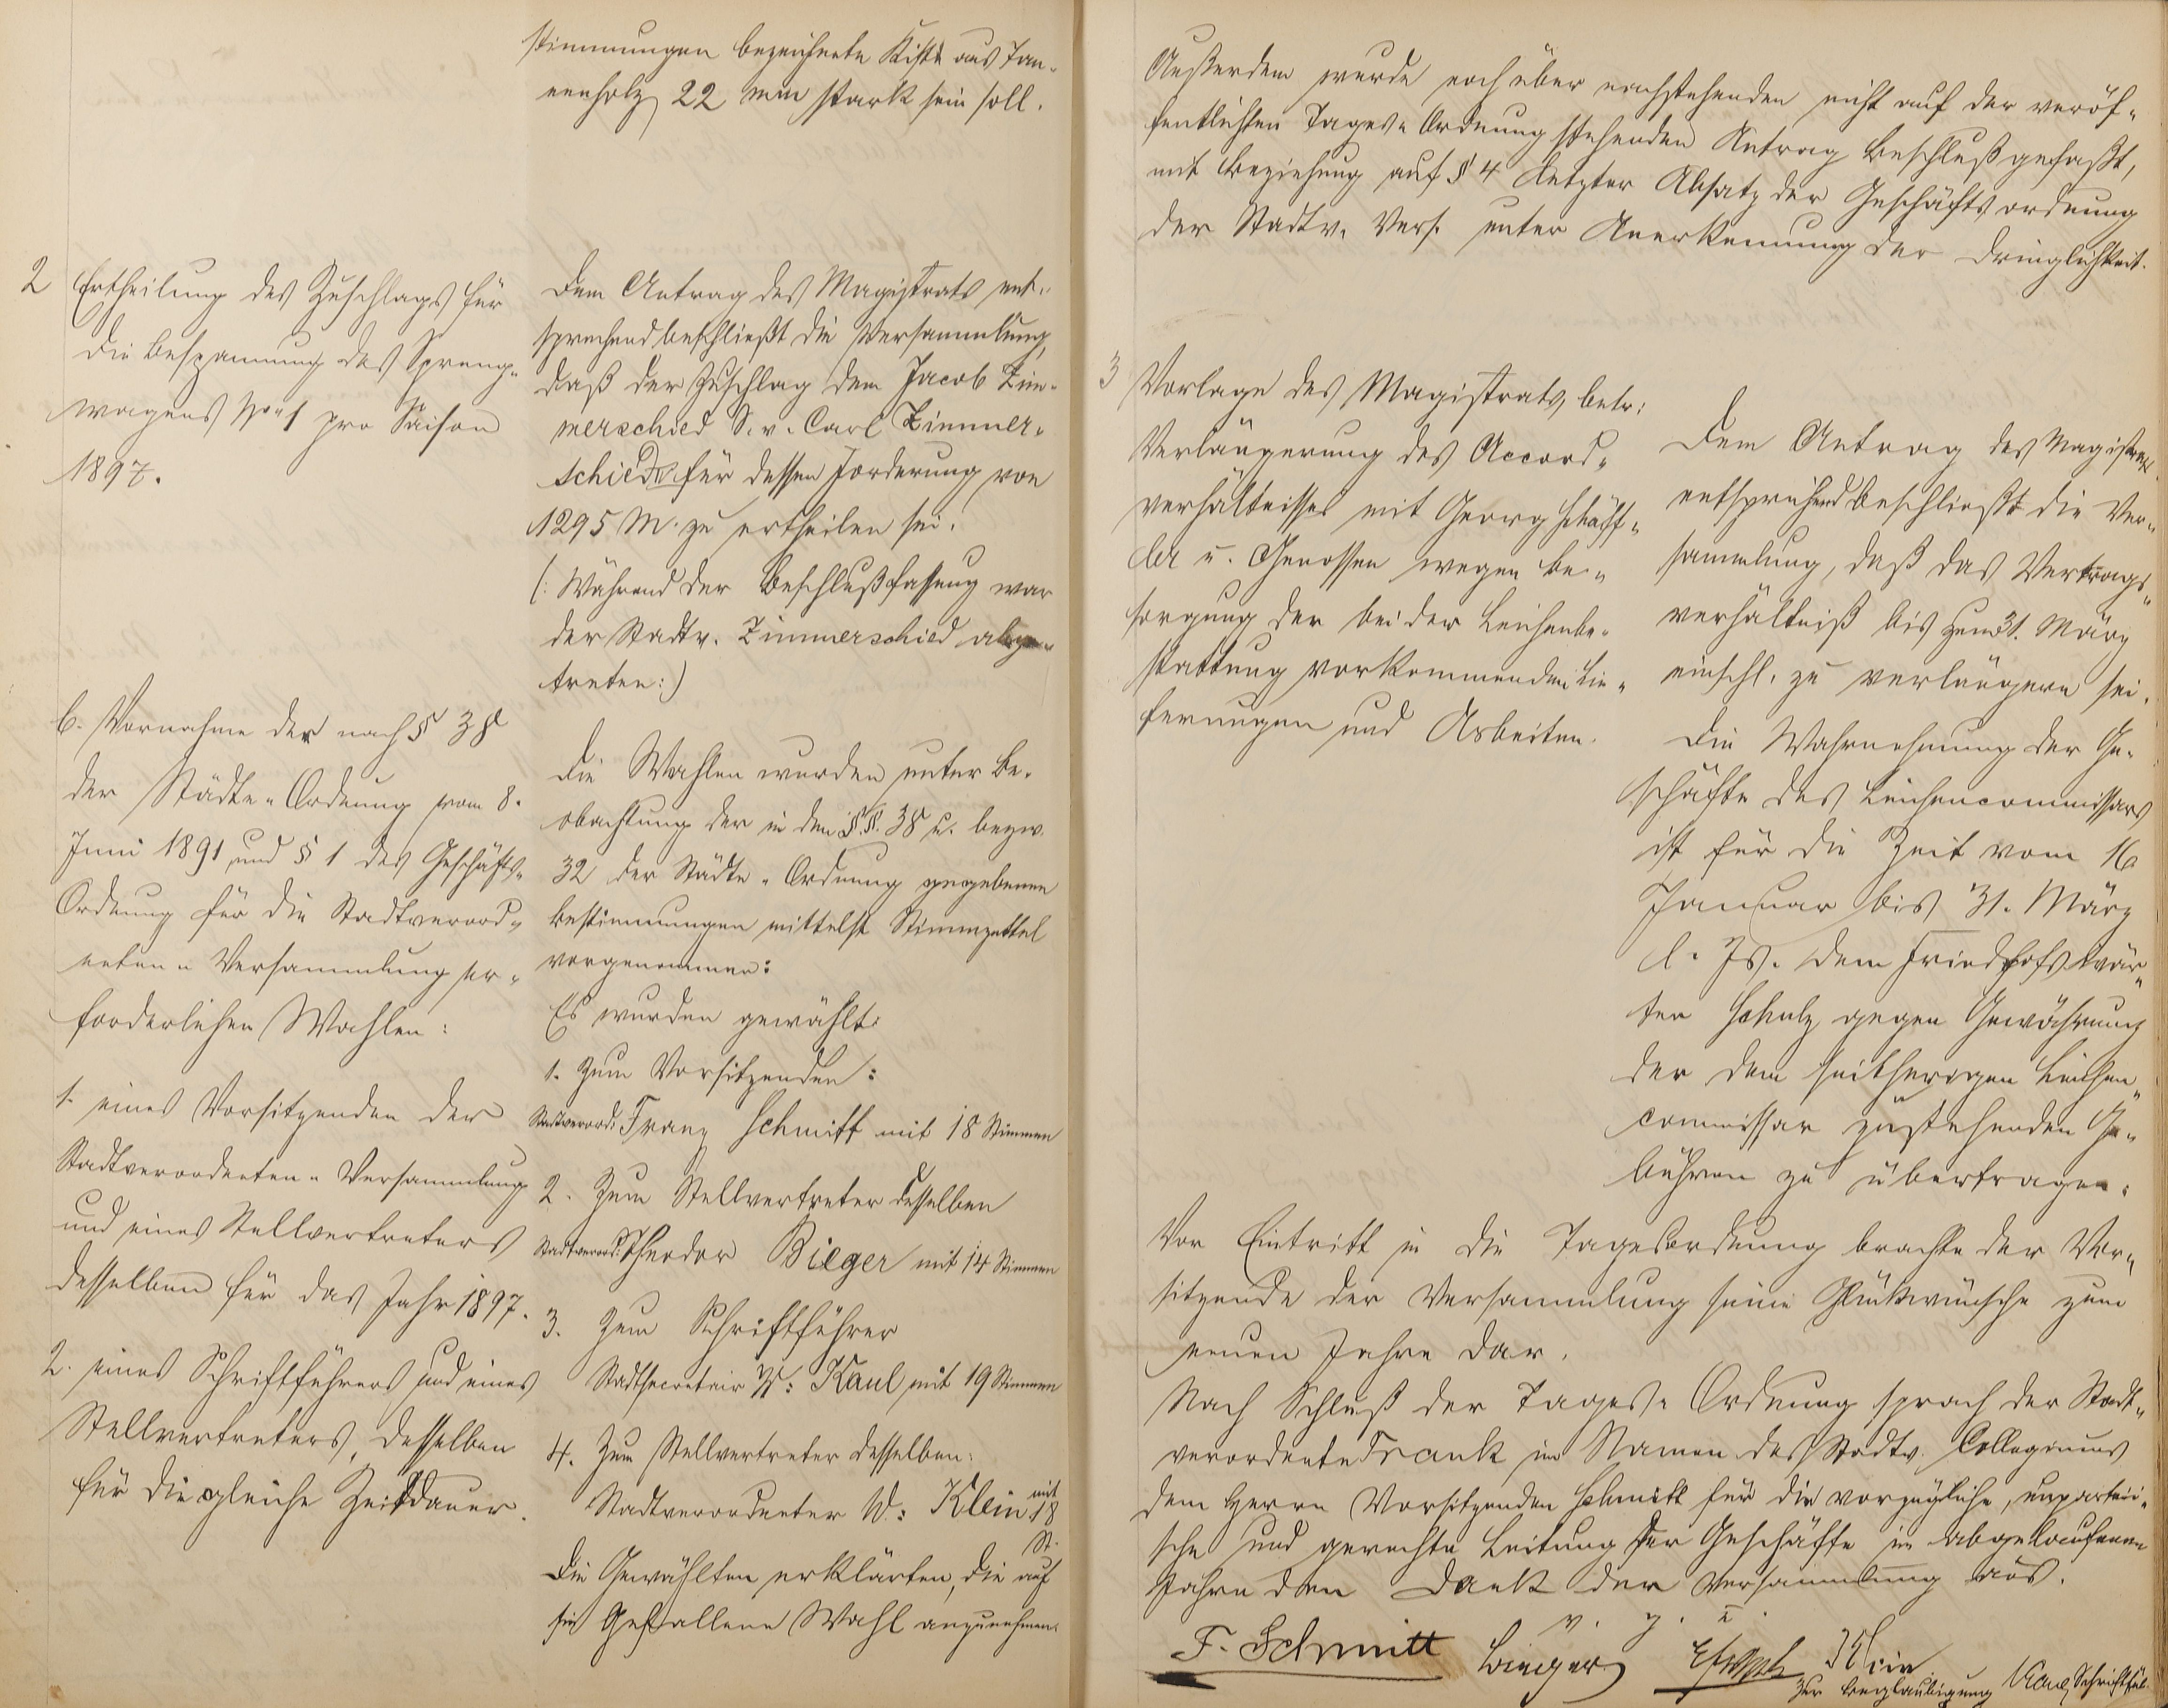 stimmungen bezeichnete Kiste aus Tan-
nenholz 22 mm stark sein soll.
2 Ertheilung des Zuschlags für
die Bespannung des Spreng-
wagens No 1 pro Saison
1897.
Dem Antrag des Magistrats ent-
sprechend beschließt die Versammlung,
daß der Zuschlag dem Jacob Zim-
merschied S. v. Carl Zimmer-
schied für dessen Forderung von
1295 M. zu ertheilen sei.
(: Während der Beschlußfassung war
der Stadtv. Zimmerschied abge-
treten :)
6. Vornahme der nach § 38
der Städte-Ordnung vom 8.
Juni 1891 und § 1 der Geschäfts-
Ordnung für die Stadtverord-
neten-Versammlung er-
forderlichen Wahlen:
1. eines Vorsitzenden der
Stadtverordneten-Versammlung
und eines Stellvertreters
desselben für das Jahr 1897.
2. eines Schriftführers und eines
Stellvertreters, desselben
für die gleiche Zeitdauer.
Die Wahlen wurden unter Be-
obachtung der in den §.§. 38 u. bezw.
32 der Städte-Ordnung gegebenen
Bestimmungen mittelst Stimmzettel
vorgenommen:
Es wurden gewählt:
1. Zum Vorsitzenden:
Stadtverord: Franz Schmitt mit 18 Stimmen
2. Zum Stellvertreter desselben
Stadtverord: Theodor Bieger mit 14 Stimmen
3. Zum Schriftführer
Stadtsecretair W: Kaul mit 19 Stimmen
4. Zum Stellvertreter desselben:
Stadtverordneter W: Klein mit 18
St.
Die Gewählten erklärten, die auf
sie Gefallene Wahl anzunehmen.
Außerdem wurde noch über nachstehenden nicht auf der veröf-
fentlichten Tages-Ordnung stehenden Antrag Beschluß gefaßt,
mit Beziehung auf § 4 letzter Absatz der Geschäftsordnung
der Stadtv. Vers. unter Anerkennung der Dringlichkeit.
3 Vorlage des Magistrats, betr:
Verlängerung des Accord-
verhältnisses mit Georg Schäff-
ler u. Genossen wegen Be-
sorgung der bei der Leichenbe-
stattung vorkommenden Lie-
ferungen und Arbeiten.
Dem Antrag des Magistrats
entsprechend beschließt die Ver-
sammlung, daß das Vertrags-
verhältniß bis zum 31. März
einschl. zu verlängern sei.
Die Wahrnehmung der Ge-
schäfte des Leichencommissars
ist für die Zeit vom 16
Januar bis 31. März
l. Js. dem Friedhofswär-
ter Schulz gegen Gewährung
der dem seitherigen Leichen-
commissar zustehenden Ge-
bühren zu übertragen.
Vor Eintritt in die Tagesordnung brachte der Vor-
sitzende der Versammlung seine Glückwünsche zum
neuen Jahre dar.
Nach Schluß der Tages-Ordnung sprach der Stadt-
verordnete Frank im Namen des Stadtv. Collegiums
dem Herrn Vorsitzenden Schmitt für die vorzügliche, unparteii-
sche und gerechte Leitung der Geschäfte im abgelaufenen
Jahre den Dank der Versammlung aus.
v. g. u.
F. Schmitt Bieger Klein
Zur Beglaubigung Kaul, Schriftfüh.